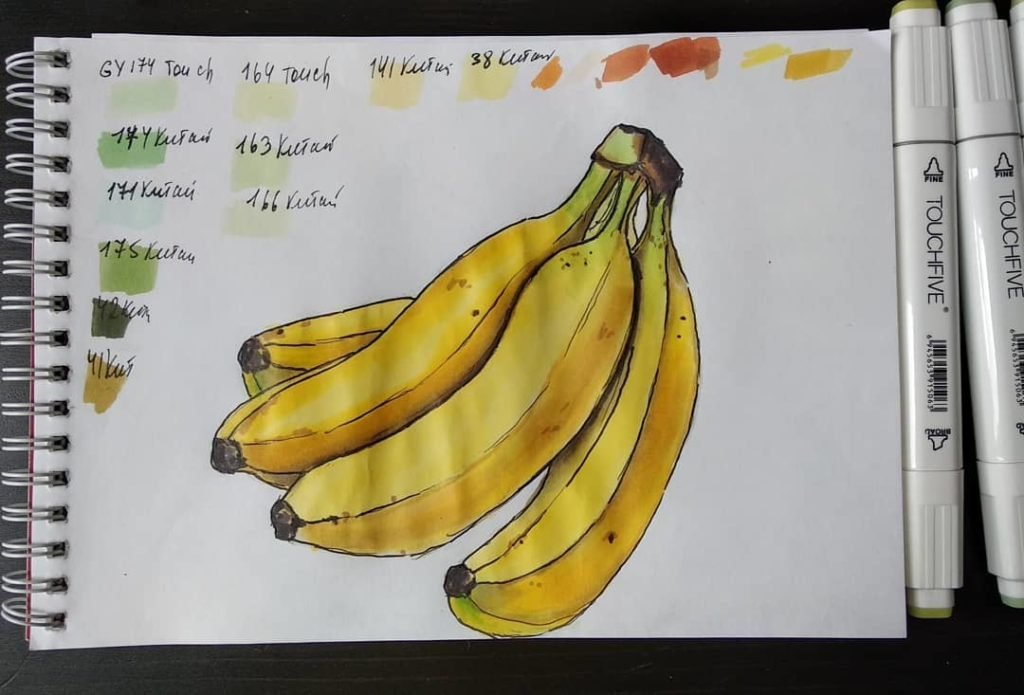 GY174 Touch
164 Touch
141 Китай
38 Китай
174 Китай
163 Китай
171 Китай
166 Китай
175 Китай
42 Кит
41 Кит
FINE
TOUCHFIVE
6945653915063
BROAD
FINE
TOUCHFIVE